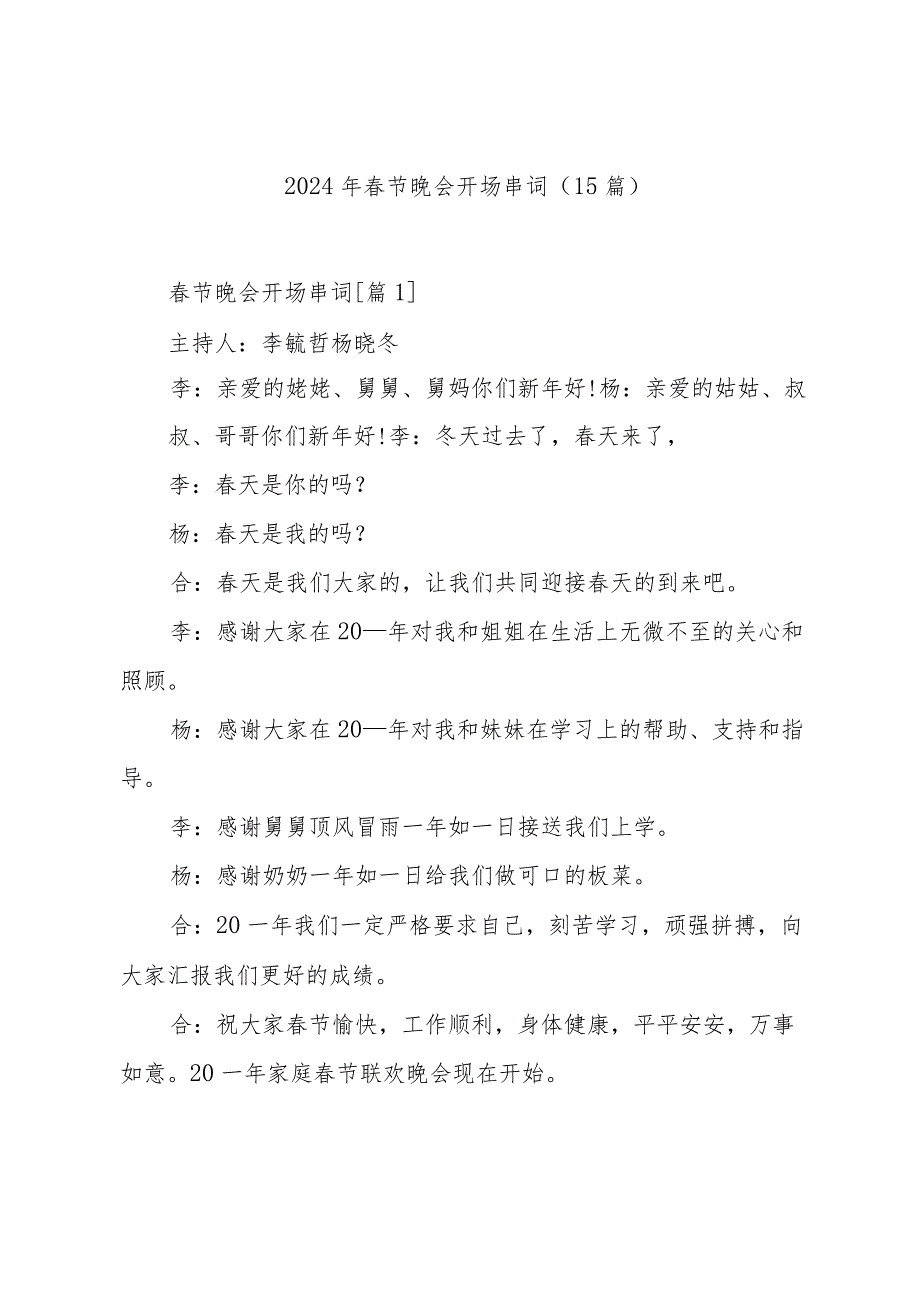 2024年春节晚会开场串词（15篇）
春节晚会开场串词[篇1]
主持人：李毓哲杨晓冬
李：亲爱的姥姥、舅舅、舅妈你们新年好!杨：亲爱的姑姑、叔
叔、哥哥你们新年好!李：冬天过去了，春天来了，
李：春天是你的吗？
杨：春天是我的吗？
合：春天是我们大家的，让我们共同迎接春天的到来吧。
李：感谢大家在20—年对我和姐姐在生活上无微不至的关心和
照顾。
杨：感谢大家在20—年对我和妹妹在学习上的帮助、支持和指
导。
李：感谢舅舅顶风冒雨一年如一日接送我们上学。
杨：感谢奶奶一年如一日给我们做可口的板菜。
合：20一年我们一定严格要求自己，刻苦学习，顽强拼搏，向
大家汇报我们更好的成绩。
合：祝大家春节愉快，工作顺利，身体健康，平平安安，万事
如意。20一年家庭春节联欢晚会现在开始。